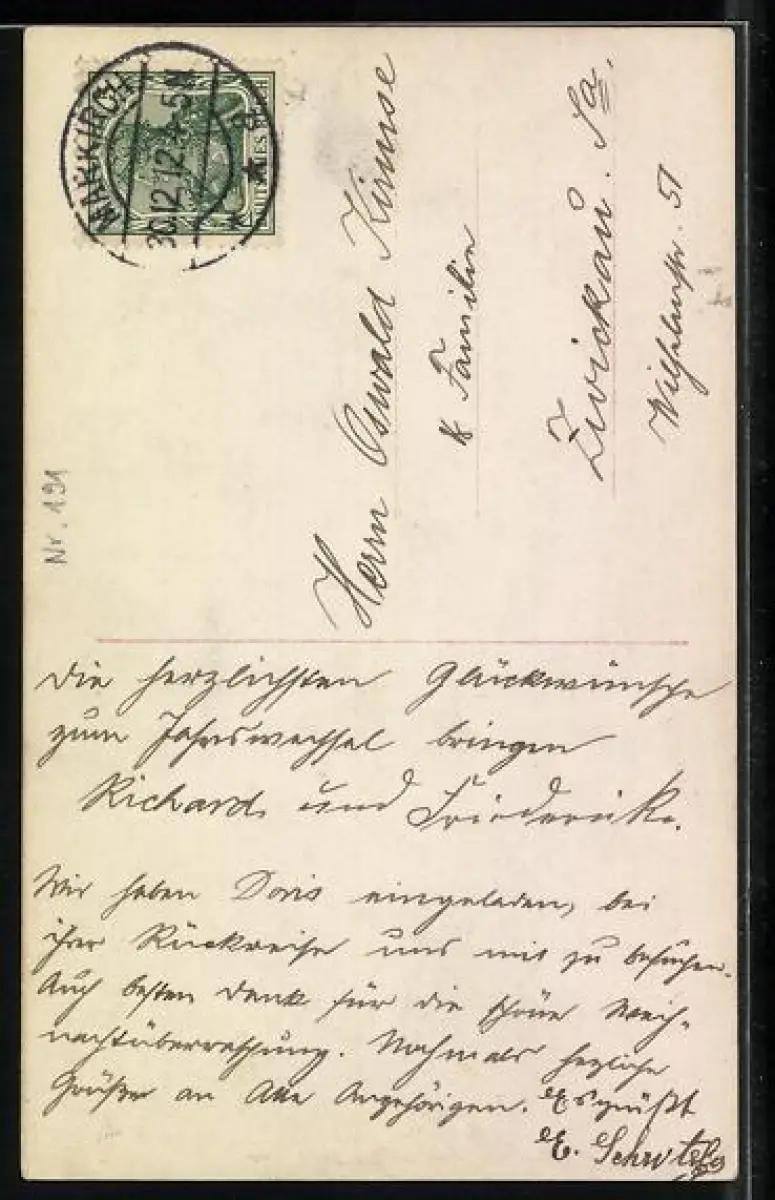 MARKIRCH
30.12.12.4-5N
Nr. 191
Herrn Oswald Kirmse
& Familie
Zwickau. Sa.
Wilhelmstr. 51
Die herzlichsten Glückwünsche
zum Jahreswechsel bringen
Richard und Friederike.
Wir haben Doris eingeladen, bei
ihrer Rückreise uns mit zu besuchen.
Auch besten Dank für die schöne Weih-
nachtüberraschung. Nochmals herzliche
Grüße an Alle Angehörigen. Es grüßt
E.